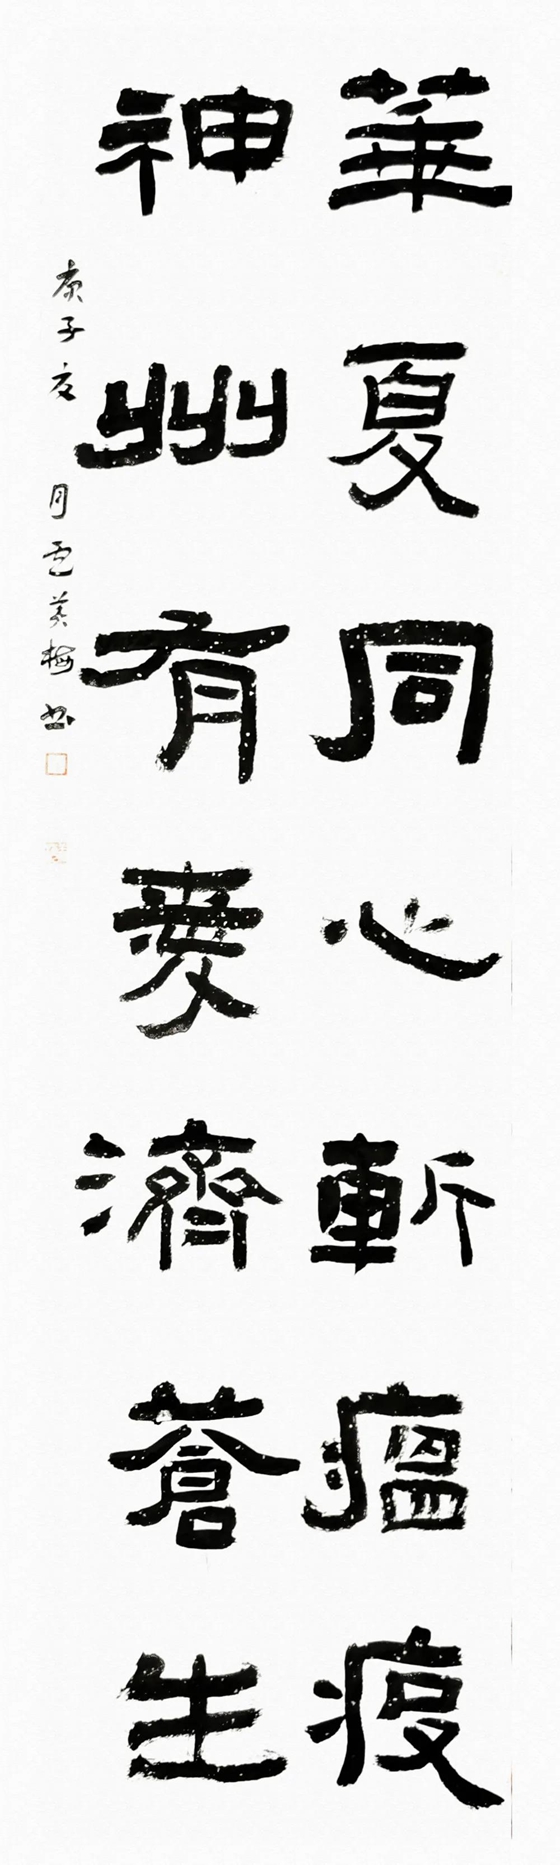 華夏同心斬瘟疫
神州有愛濟蒼生
庚子夏月孟美梅書